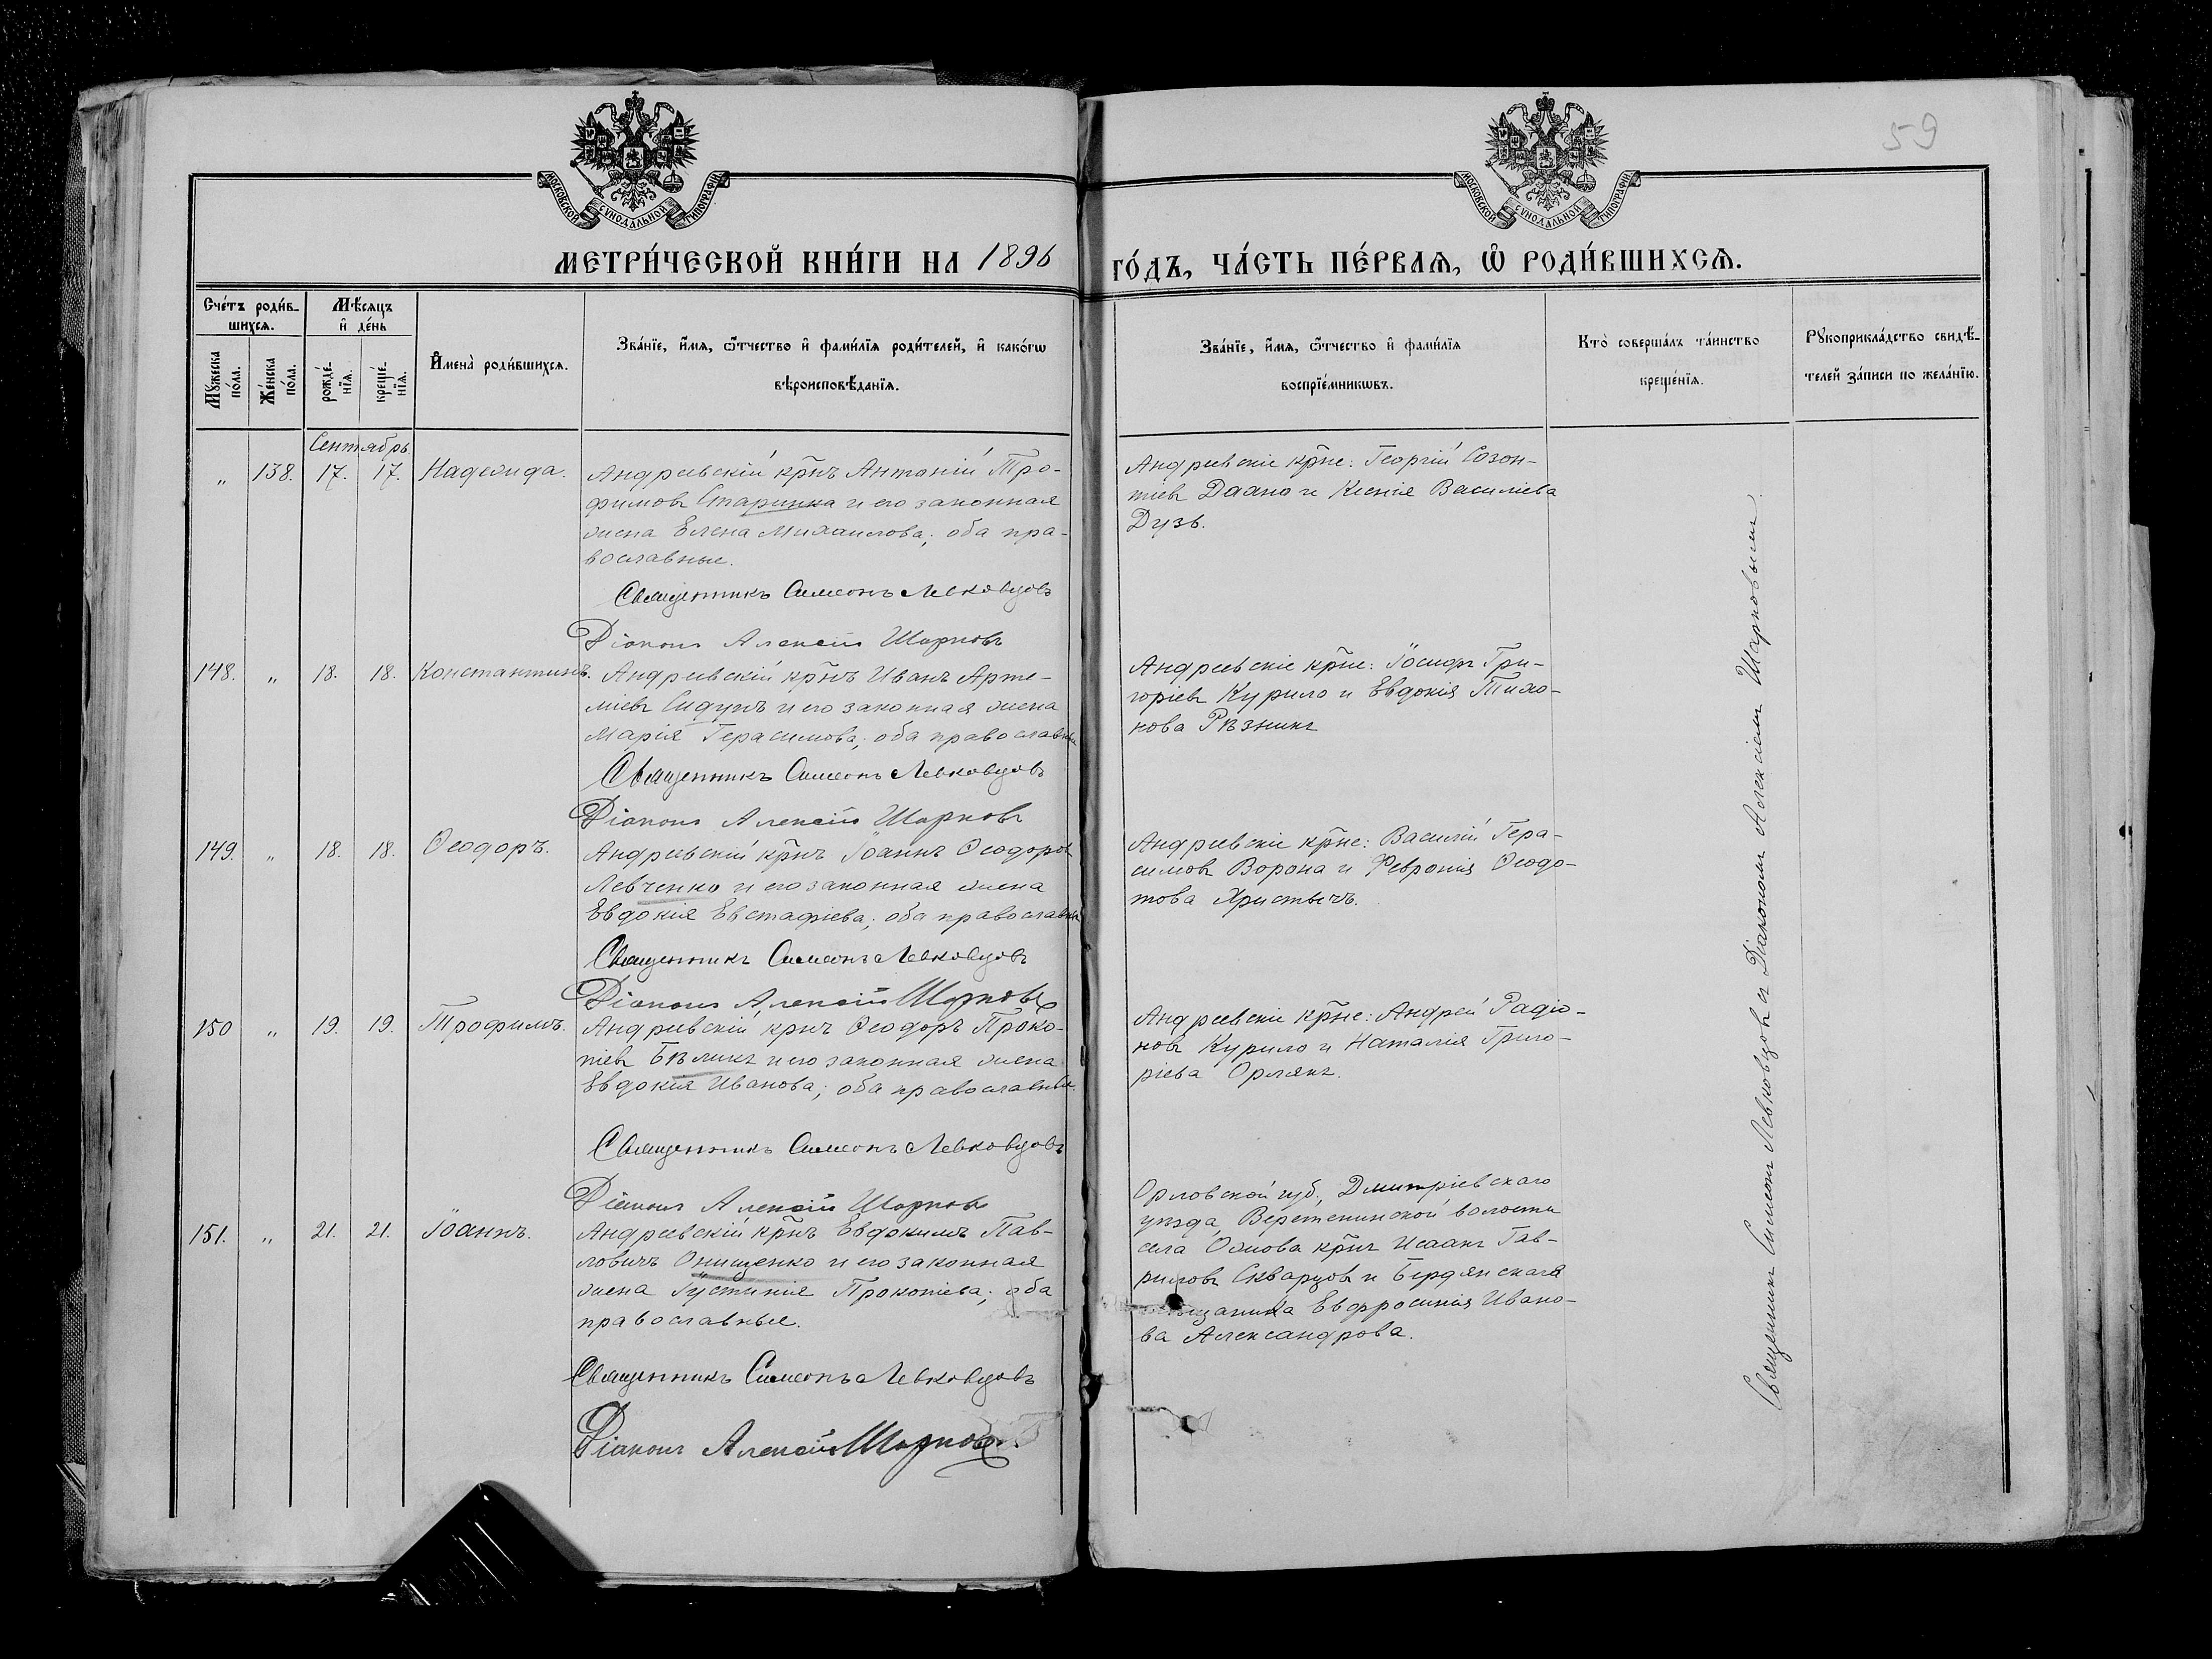 59
МОСКОВСКОЙ СѴНОДАЛЬНОЙ ТИПОГРАФІИ
МОСКОВСКОЙ СѴНОДАЛЬНОЙ ТИПОГРАФІИ
МЕТРИ́ЧЕСКОЙ КНИ́ГИ НА 1896
ГО́ДЪ, ЧА́СТЬ ПЕ́РВАѦ, Ѡ҆ РОДИ́ВШИХСѦ.
Сче́тъ роди́в-
шихсѧ.
Мꙋ́жеска
по́ла.
Же́нска
по́ла.
Мѣ́сѧцъ
и҆ де́нь
рожде́-
нїѧ.
креще́-
нїѧ.
И҆мена̀ роди́вшихсѧ.
Зва́нїе, и҆́мѧ, ѻ҆́тчество и҆ фами́лїѧ роди́телей, и҆ како́гѡ
вѣроисповѣ́данїѧ.
Зва́нїе, и҆́мѧ, ѻ҆́тчество и҆ фами́лїѧ
воспрїе́мникѡвъ.
Кто̀ соверша́лъ та́инство
креще́нїѧ.
Рꙋкоприкла́дство свидѣ́-
телей за́писи по жела́нїю.
Сентябрь
„ 138. 17. 17. Надежда.
Андреевскій кр̃нъ Антоній Тро-
фимовъ Старинка и его законная
жена Елена Михаилова; оба пра-
вославные.
Священникъ Симеонъ Левковцовъ
Діаконъ Алексій Шарковъ
Андреевскіе кр̃не: Георгій Созон-
тіевъ Даано и Ксенія Василіева
Дузь.
148. „ 18. 18. Константинъ.
Андреевскій кр̃нъ Иванъ Арте-
міевъ Сидунъ и его законная жена
Марія Герасимова; оба православны
Священникъ Симеонъ Левковцовъ
Діаконъ Алексій Шарковъ
Андреевскіе кр̃не: Іосифъ Гри-
горіевъ Курило и Евдокія Тихо-
нова Рѣзникъ
149. „ 18. 18. Ѳеодоръ.
Андреевскій кр̃нъ Іоаннъ Ѳеодоров
Левченко и его законная жена
Евдокія Евстафіева; оба православны
Священникъ Симеонъ Левковцовъ
Діаконъ Алексій Шарковъ
Андреевскіе кр̃не: Василій Гера-
симовъ Ворона и Февронія Ѳеодо-
това Христычъ.
150 „ 19. 19. Трофимъ.
Андреевскій кр̃нъ Ѳеодоръ Проко-
піевъ Бѣликъ и его законная жена
Евдокія Иванова; оба православны.
Священникъ Симеонъ Левковцовъ
Діаконъ Алексій Шарковъ
Андреевскіе кр̃не: Андрей Радіо-
новъ Курило и Наталія Григо-
ріева Орлянъ.
151. „ 21. 21. Іоаннъ.
Андреевскій кр̃нъ Евдокимъ Пав-
ловичъ Онищенко и его законная
жена Іустинія Прокопіева; оба
православные.
Священникъ Симеонъ Левковцовъ
Діаконъ Алексій Шарковъ
Орловской губ., Дмитріевскаго
уѣзда, Веретенинской волости
села кр̃нъ Исаакъ Гав-
риловъ Скварцовъ и Бердянскага
Евфросинія Ивано-
ва Александрова.
Священникъ Симеонъ Левковцовъ съ Діакономъ Алексіемъ Шарковымъ.